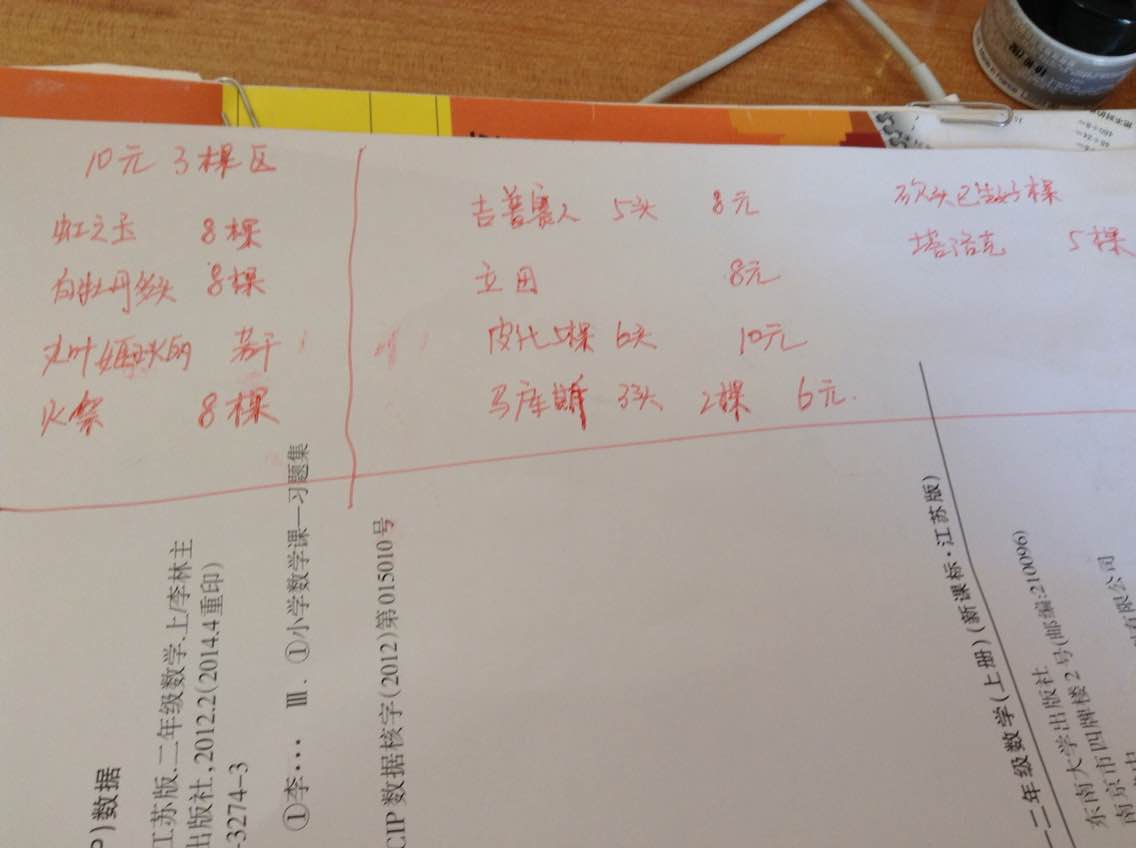 10元 3棵区
虹之玉 8棵
白牡丹多头 8棵
大叶姬秋丽 若干
火祭 8棵
吉普赛人 5头 8元
立田 8元
皮化5棵 6头 10元
马库斯 3头 2棵 6元.
砍头已生好 棵
塔洛克 5棵
P)数据
江苏版.二年级数学.上/李林主
出版社,2012.2(2014.4重印)
-3274-3
①李… Ⅲ. ①小学数学课—习题集
CIP 数据核字(2012)第015010号
二年级数学(上册)(新课标·江苏版)
东南大学出版社
南京市四牌楼2号(邮编:210096)
有限公司